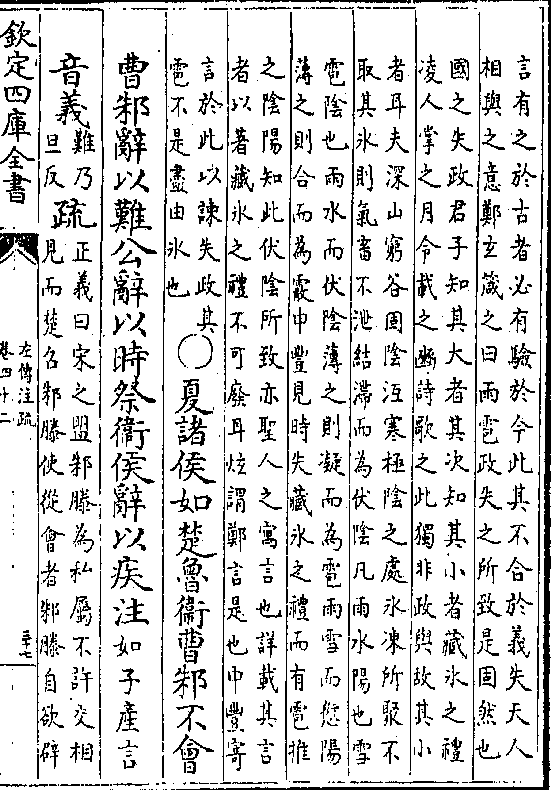 言有之於古者必有驗於今此其不合於義失天人
相與之意鄭玄箴之曰雨雹政失之所致是固然也
國之失政君子知其大者其次知其小者藏氷之禮
凌人掌之月令載之豳詩歌之此獨非政與故其小
者耳夫深山窮谷固陰沍寒極陰之處氷凍所聚不
取其氷則氣畜不泄結滯而為伏陰凡雨水陽也雪
雹陰也雨水而伏陰薄之則凝而為雹雨雪而愆陽
薄之則合而為霰申豐見時失藏氷之禮而有雹推
之陰陽知此伏陰所致亦聖人之寓言也詳載其言
者以著藏氷之禮不可廢耳炫謂鄭言是也申豐寄
言於此以諫失政其
雹不是盡由氷也
○夏諸侯如楚魯衞曹邾不會
曹邾辭以難公辭以時祭衞侯辭以疾注如子產言
音義難乃
旦反
疏正義曰宋之盟邾滕為私屬不許交相
見而楚召邾滕使從會者邾滕自欲辟
欽定四庫全書
左傳注疏
卷四十二
三十七